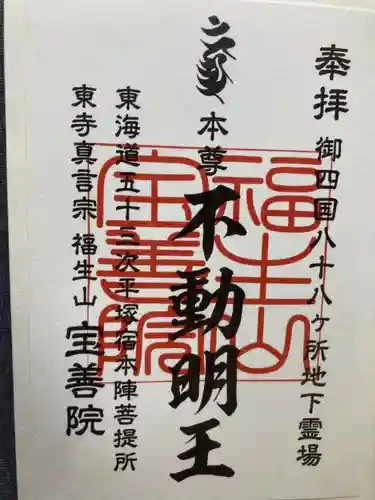 奉拝
御四国八十八ケ所地下霊場
本尊
不動明王
東海道五十三次平塚宿本陣菩提所
東寺真言宗 福生山 宝善院
福生山
宝善院